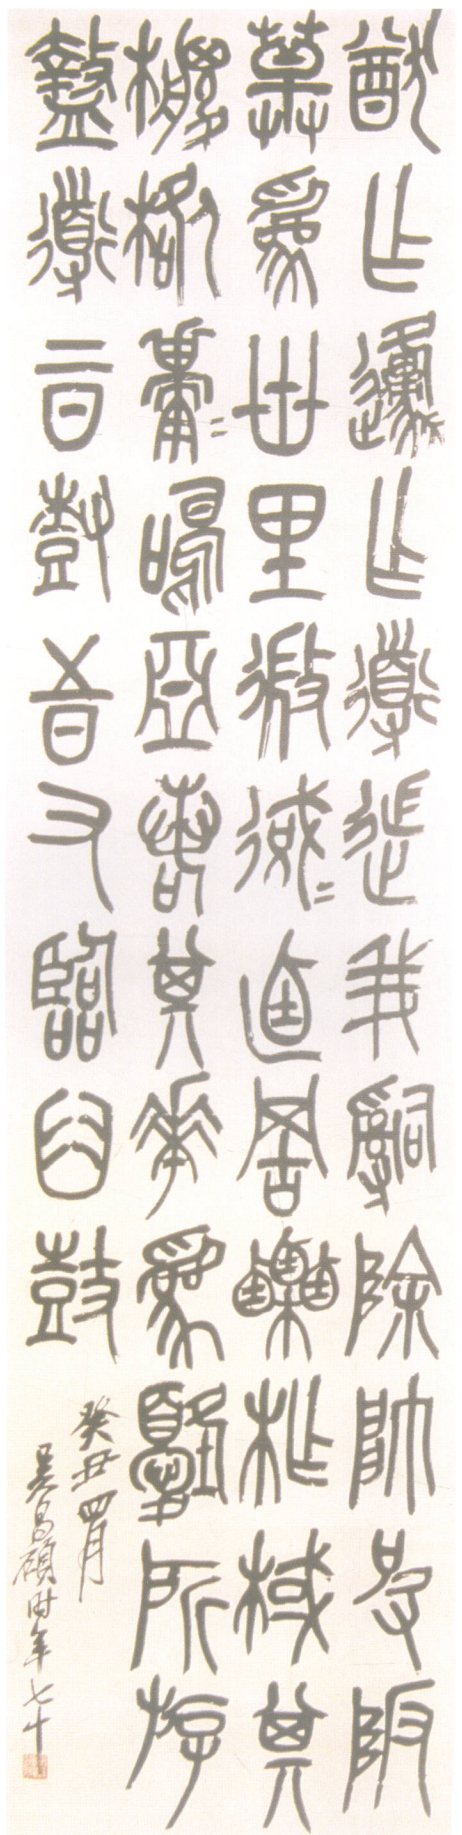 猷乍邍乍導遄我嗣除帥彼阪
草為卅里微徹=逌罟栗柞棫其
椶楛庸=鳴亞箬其華為所斿
盩導二日尌五日又臨鼓
癸丑四月
吳昌碩時年七十